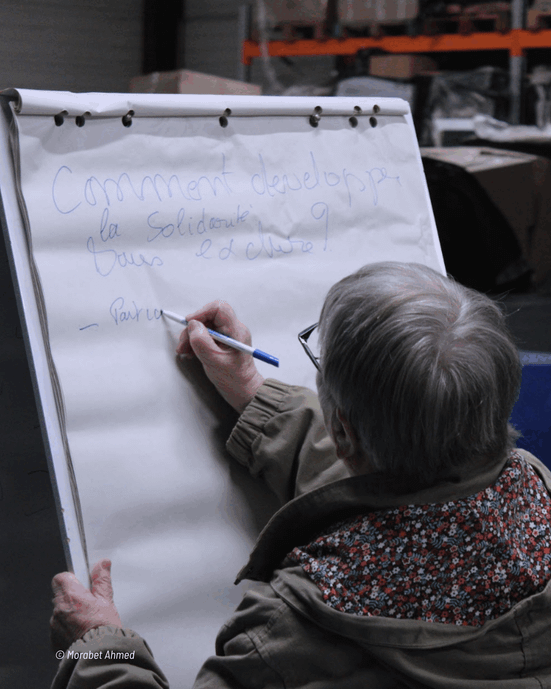 Comment developper
la Solidarité
Sans exclure?
- Partic
© Morabet Ahmed